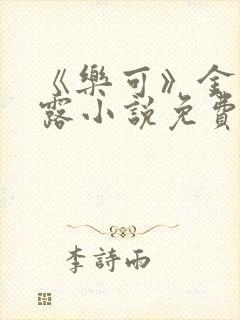 《樂可》金
露小說免費
李詩雨